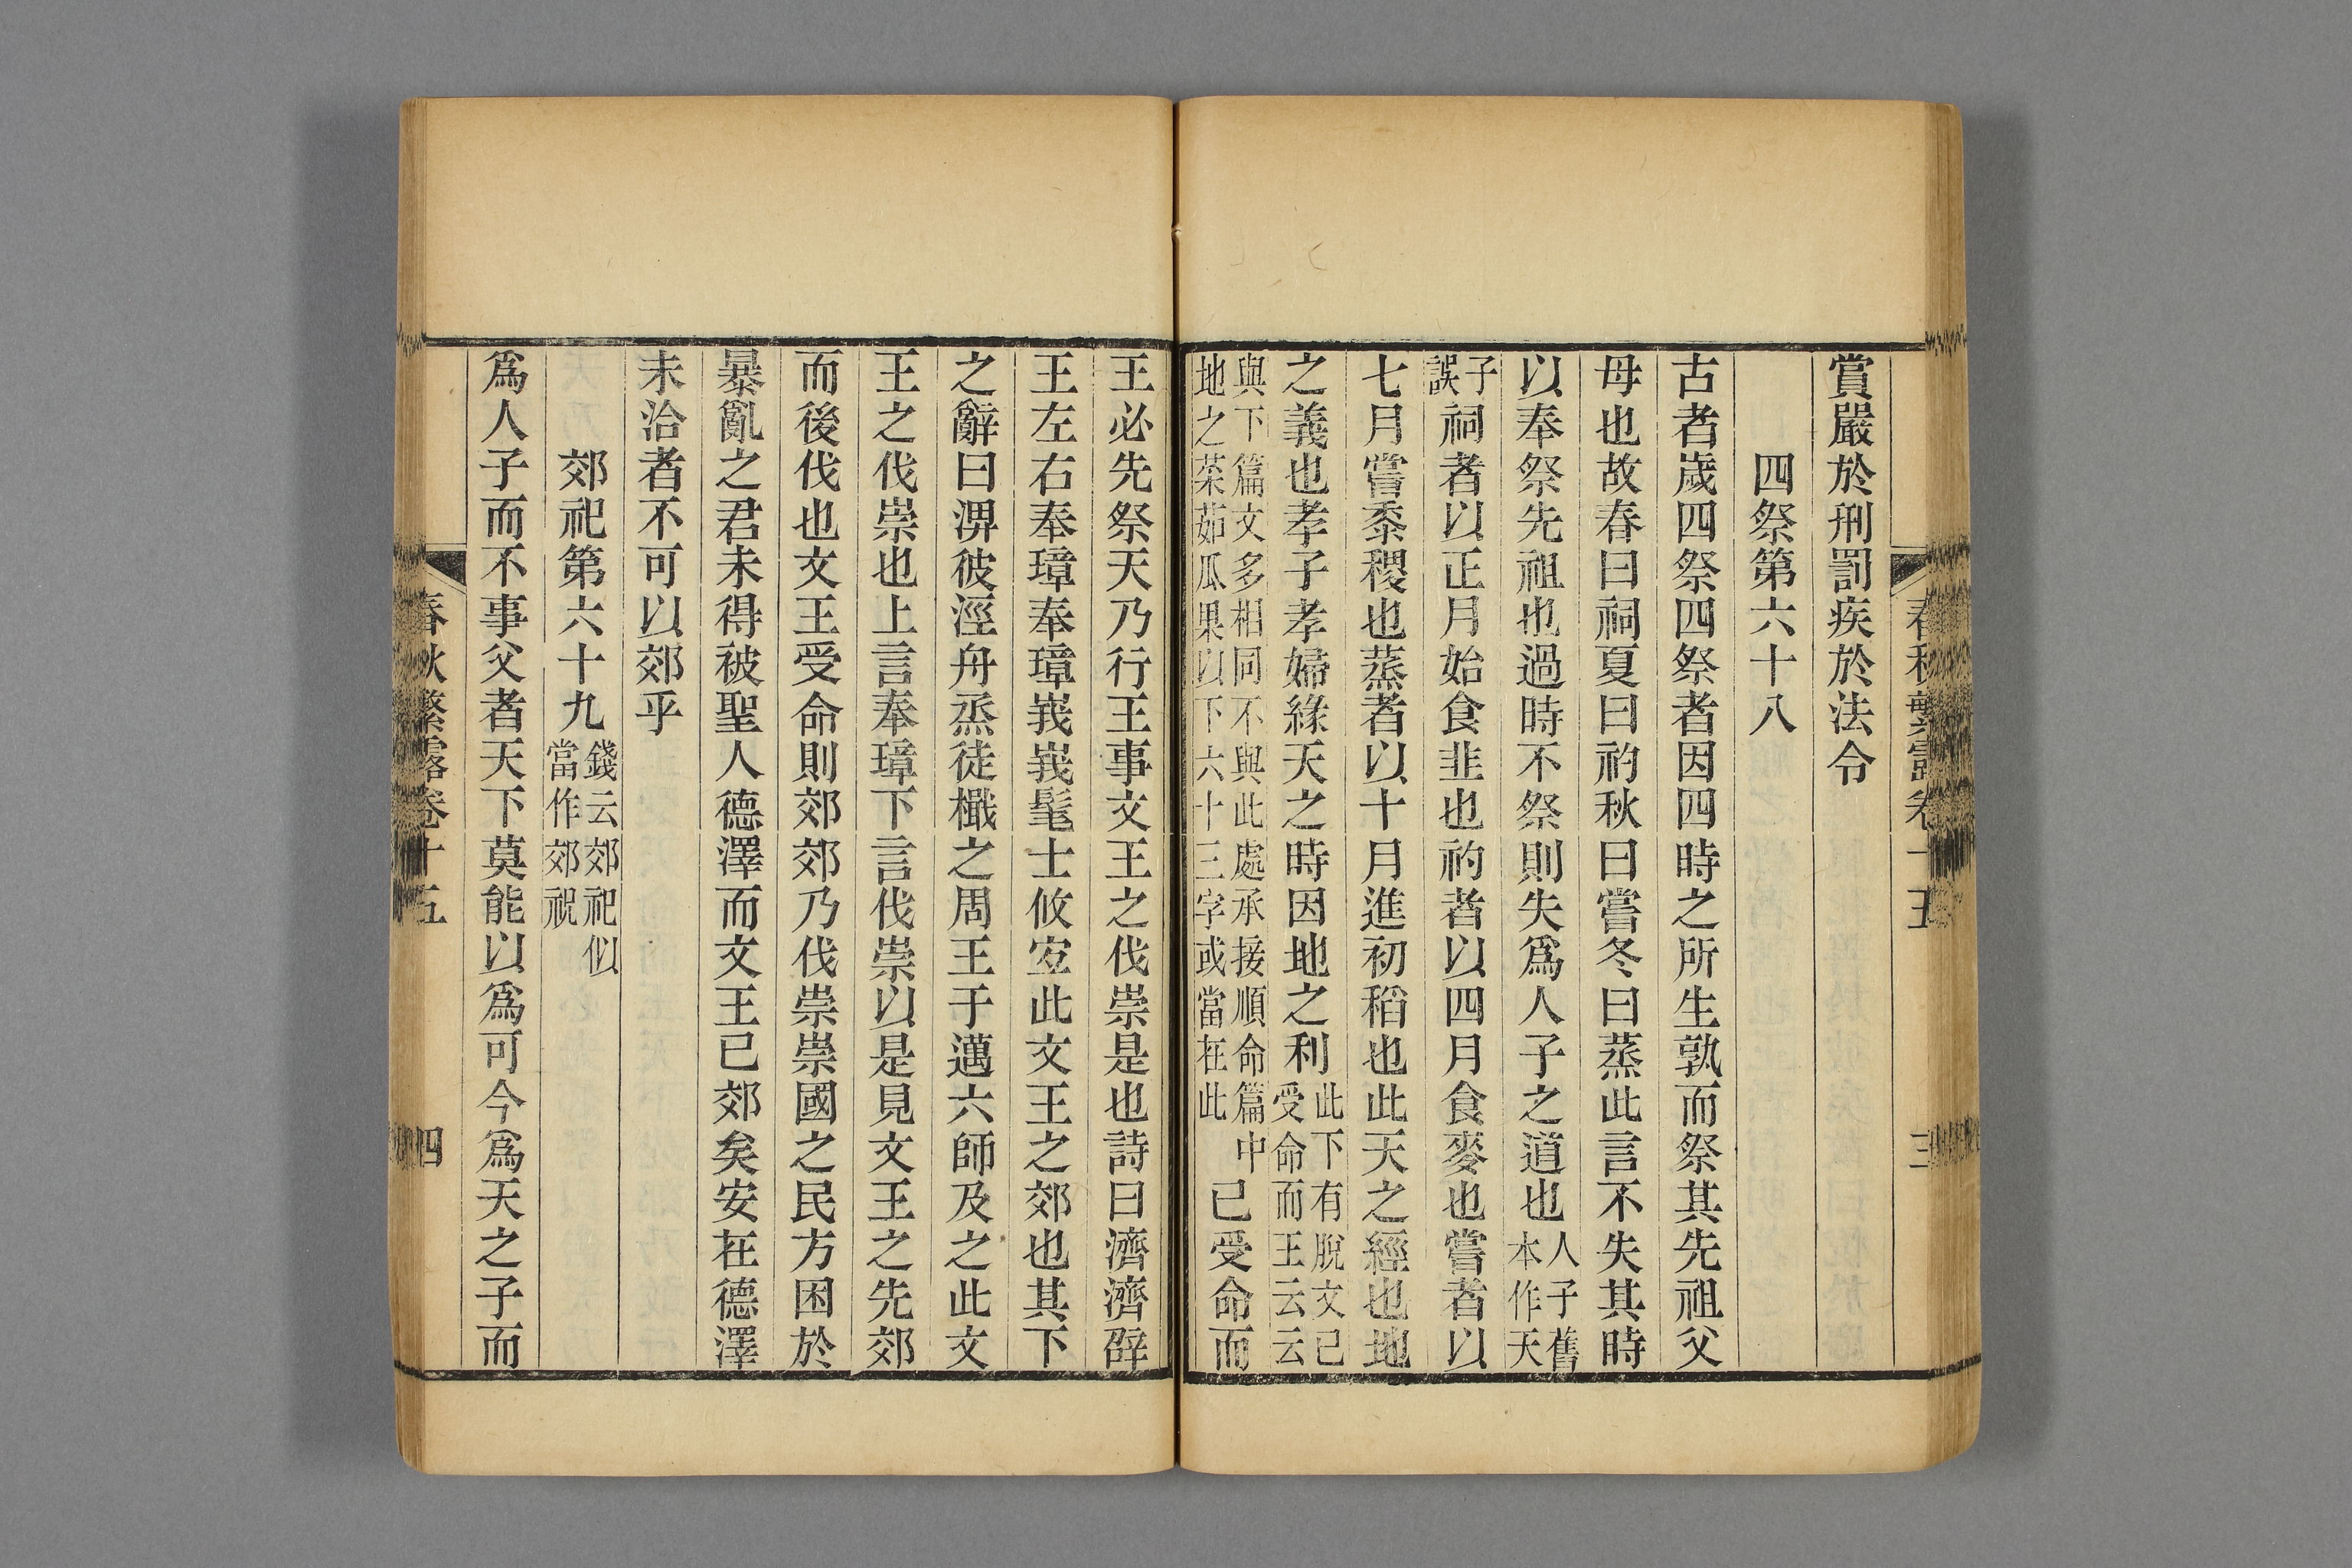 春秋繁露卷十五 三
賞嚴於刑罰疾於法令
四祭第六十八
古者歲四祭四祭者因四時之所生孰而祭其先祖父
母也故春曰祠夏曰礿秋曰嘗冬曰蒸此言不失其時
以奉祭先祖也過時不祭則失爲人子之道也人子舊本作天
子誤祠者以正月始食韭也礿者以四月食麥也嘗者以
七月嘗黍稷也蒸者以十月進初稻也此天之經也地
之義也孝子孝婦緣天之時因地之利此下有脫文已受命而王云云
與下篇文多相同不與此處承接順命篇中地之菜茹瓜果以下六十三字或當在此已受命而
王必先祭天乃行王事文王之伐崇是也詩曰濟濟辟
王左右奉璋奉璋峩峩髦士攸宐此文王之郊也其下
之辭曰淠彼涇舟烝徒檝之周王于邁六師及之此文
王之伐崇也上言奉璋下言伐崇以是見文王之先郊
而後伐也文王受命則郊郊乃伐崇崇國之民方困於
暴亂之君未得被聖人德澤而文王已郊矣安在德澤
未洽者不可以郊乎
郊祀第六十九錢云郊祀似當作郊祝
爲人子而不事父者天下莫能以爲可今爲天之子而
春秋繁露卷十五 四